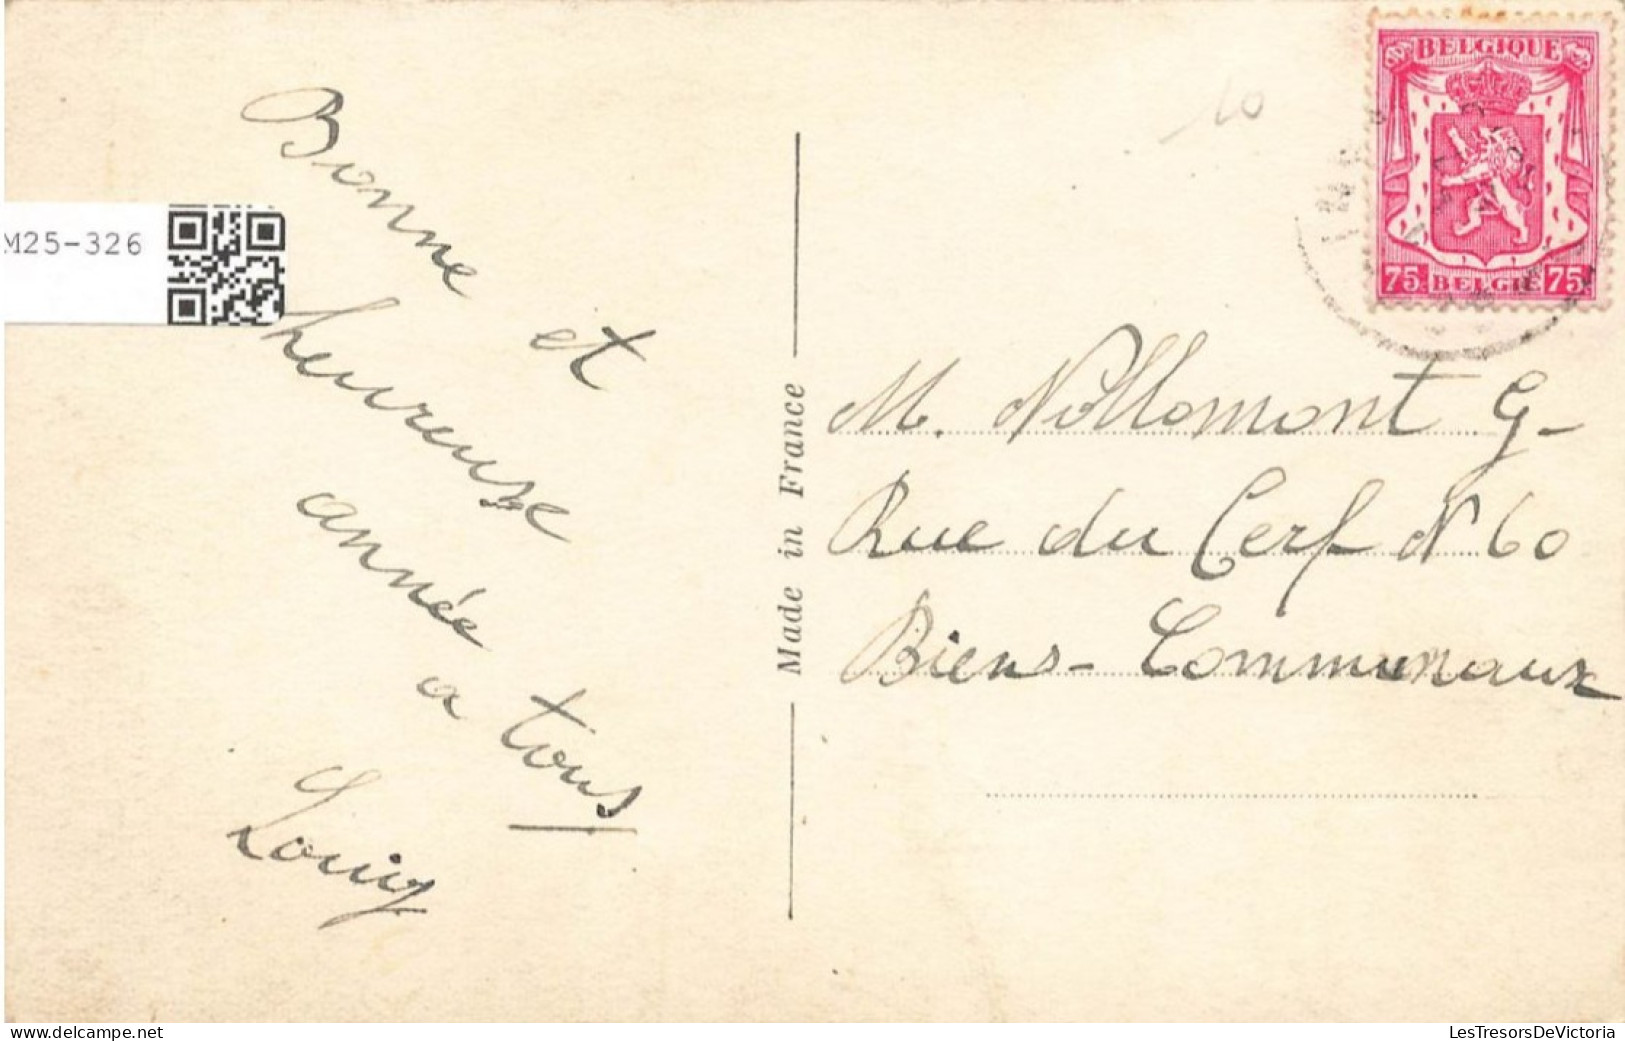 Bonne et
heureuse
année
a tous
Louis
M25-326
Made in France
10
BELGIQUE
75 BELGIE 75
M. Nollomont G-
Rue du Cerf N 60
Biens-Communaux
www.delcampe.net
LesTresorsDeVictoria